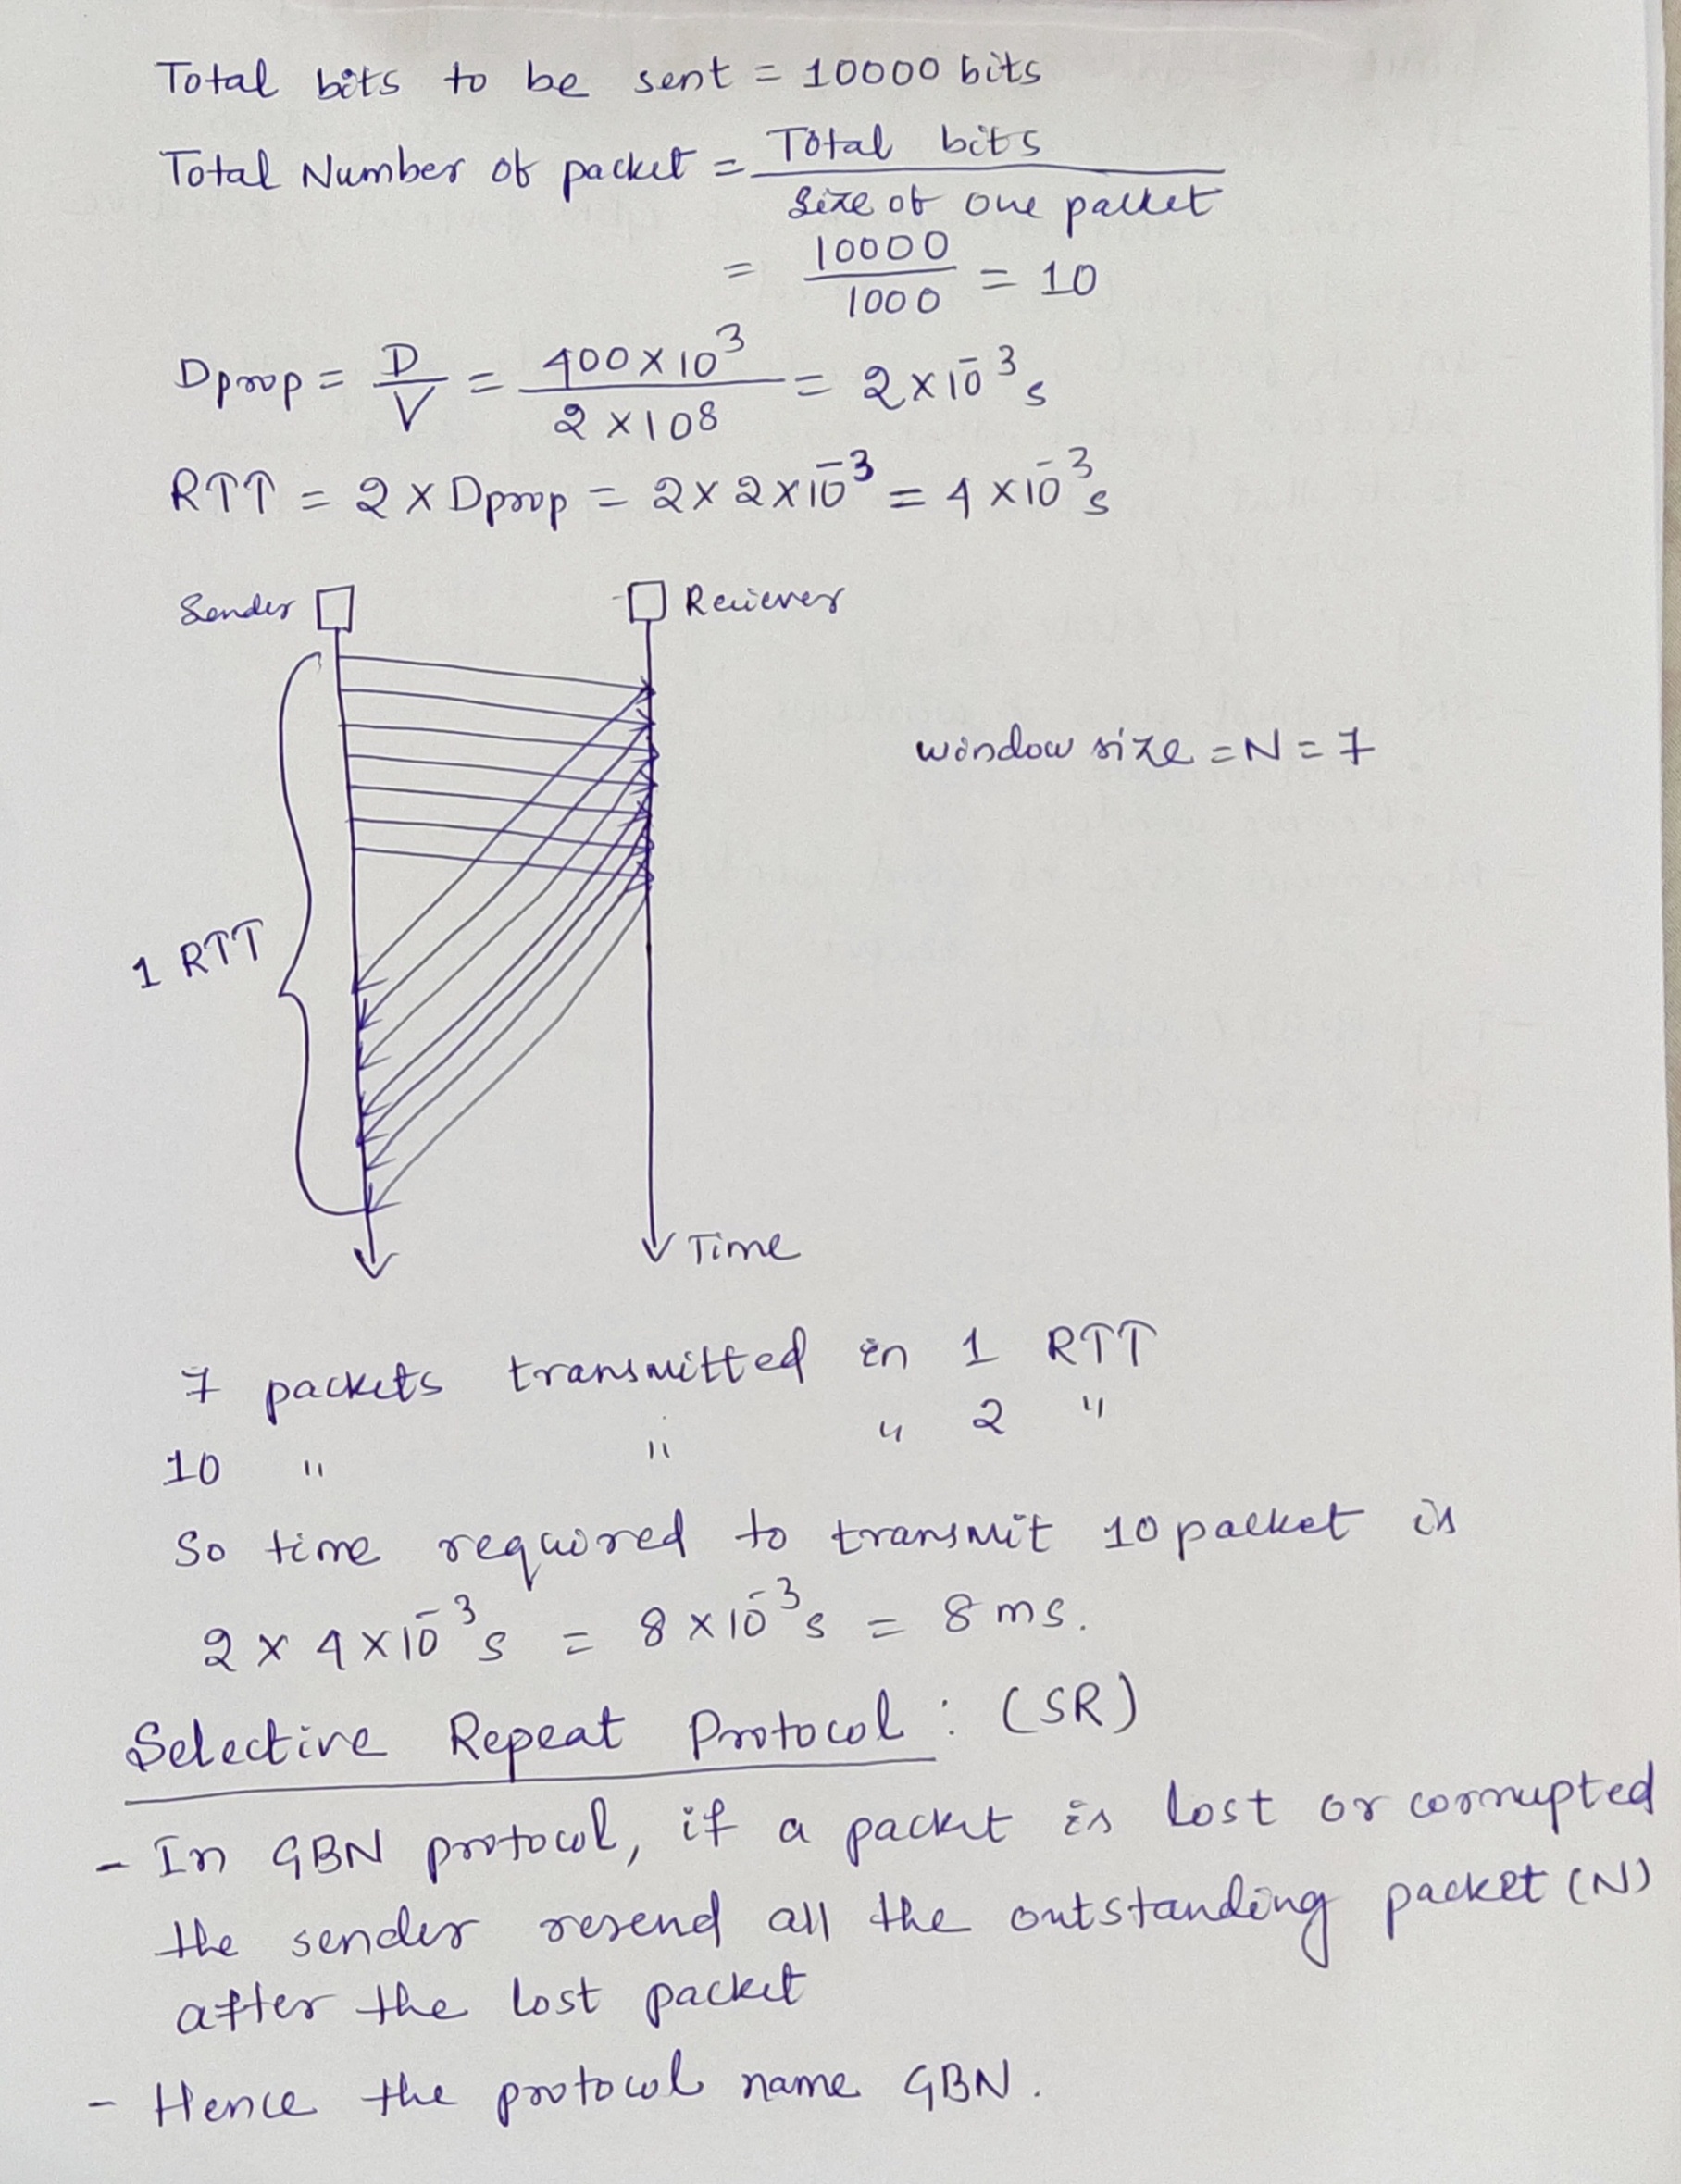 Total bits to be sent = 10000 bits
Total Number of packet = Total bits / Size of one packet
= 10000 / 1000 = 10
Dprop = D / V = 400 × 10³ / 2 × 10⁸ = 2 × 10⁻³ s
RTT = 2 × Dprop = 2 × 2 × 10⁻³ = 4 × 10⁻³ s
Sender
Reciever
window size = N = 7
1 RTT
Time
7 packets transmitted in 1 RTT
10 " " " 2 "
So time required to transmit 10 packet is
2 × 4 × 10⁻³ s = 8 × 10⁻³ s = 8 ms.
Selective Repeat Protocol : (SR)
- In GBN protocol, if a packet is lost or corrupted
the sender resend all the outstanding packet (N)
after the lost packet
- Hence the protocol name GBN.